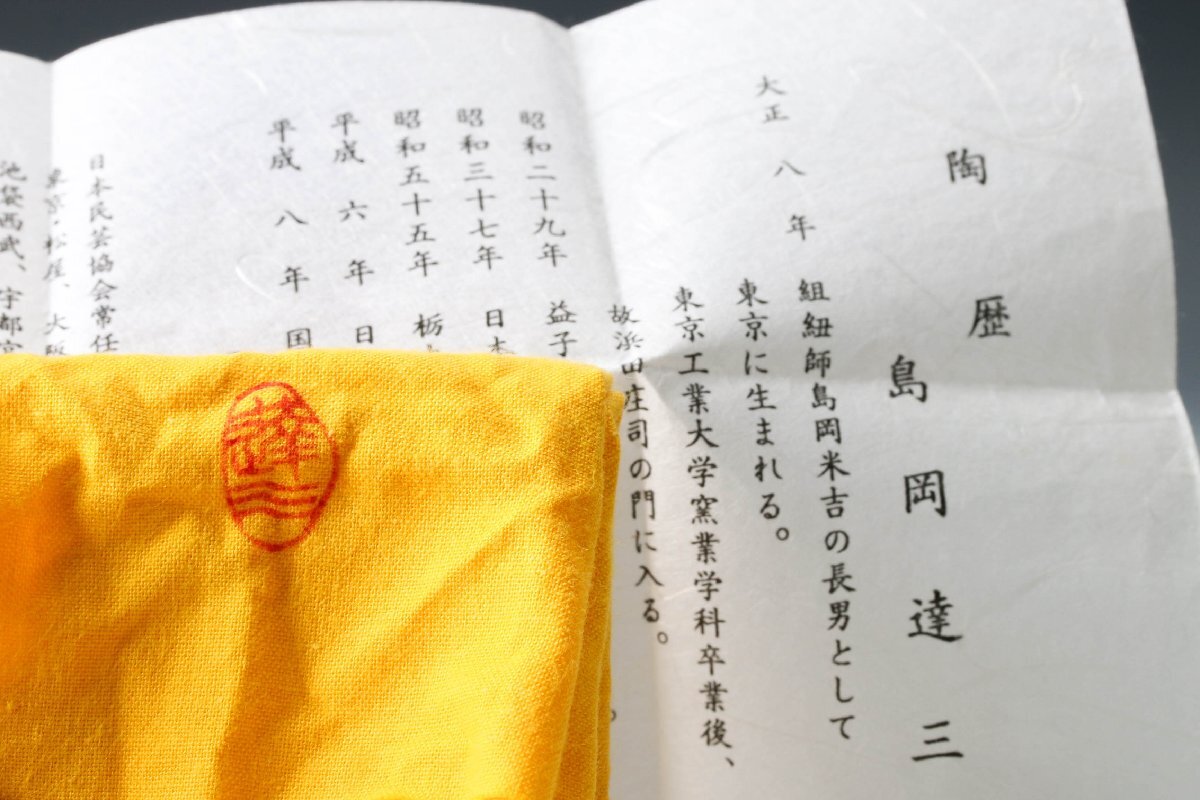 陶歴
島岡達三
大正八年
組紐師島岡米吉の長男として
東京に生まれる。
東京工業大学窯業学科卒業後、
故浜田庄司の門に入る。
昭和二十九年 益子
昭和三十七年 日本
昭和五十五年 栃
平成六年 日
平成八年 国
日本民芸協会常任
東京・松屋、大阪
池袋西武、宇都宮
達